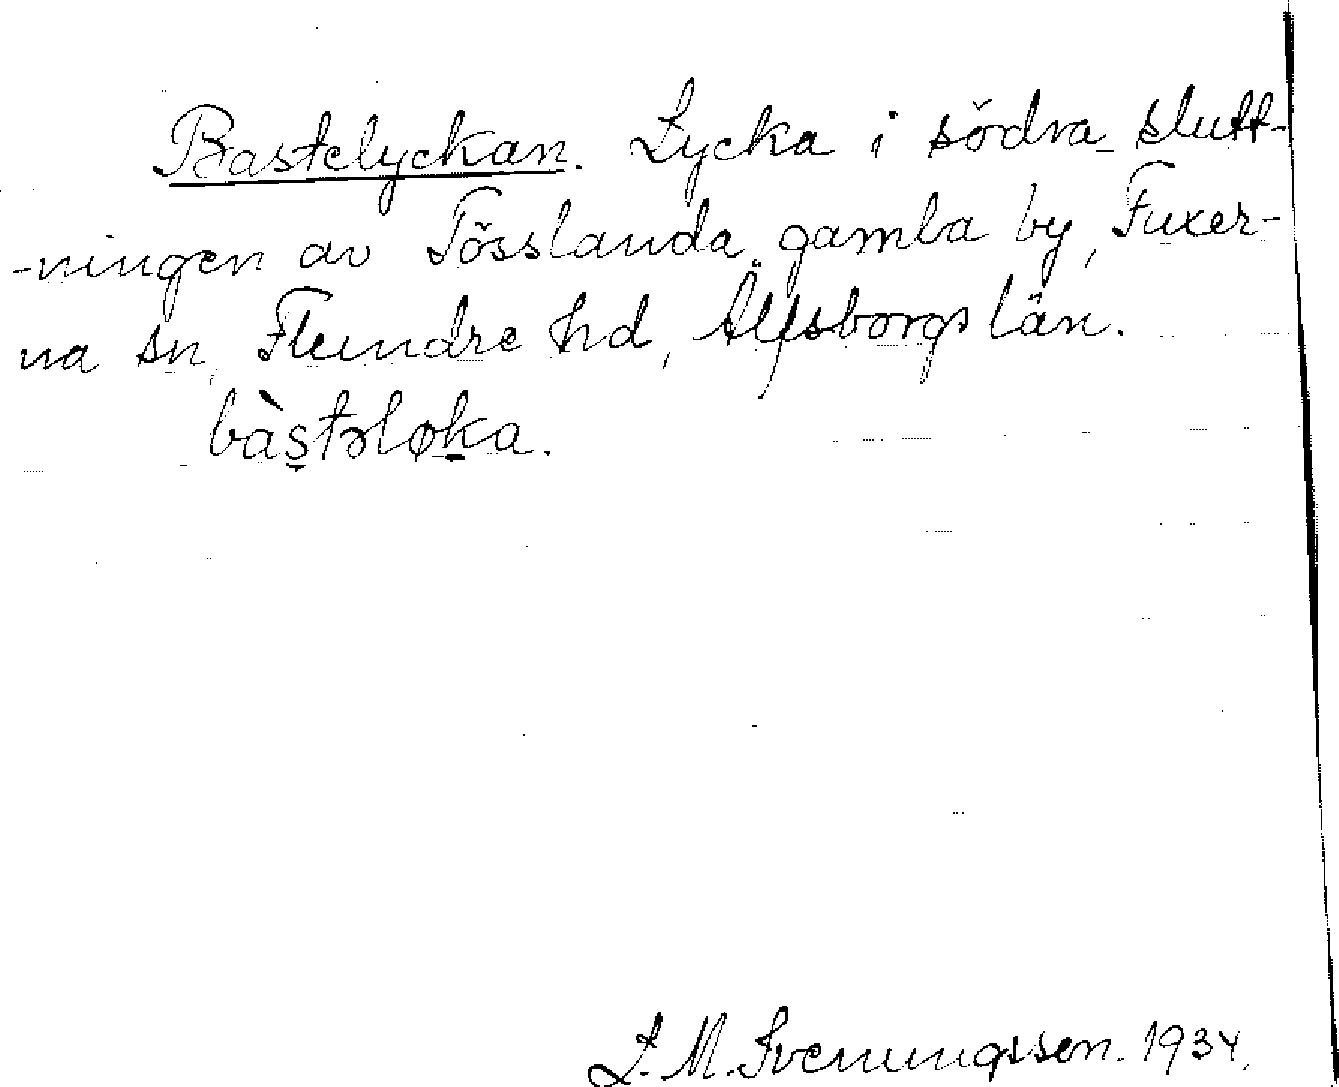 Bastelyckan. Lycka i södra slutt-
-ningen av Tösslanda gamla by, Fuxer-
na sn, Flundre hd, Älfsborgs län.
bàs̱təløḵa.
L. M. Svenungsson. 1934.